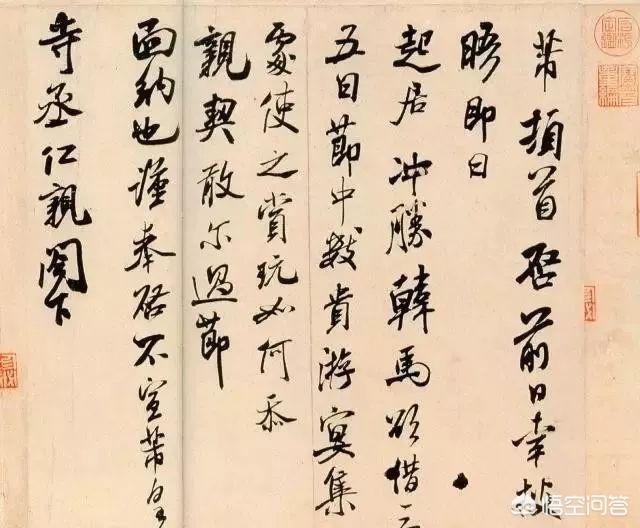 芾頓首啓前日幸披
晤即日
起居冲勝韓馬欲借三
五日節中數貴游宴集
處使之賞玩如何忝
親契敢尔過節
面納也謹奉啓不宣芾皇
寺丞仁親閣下
悟空问答